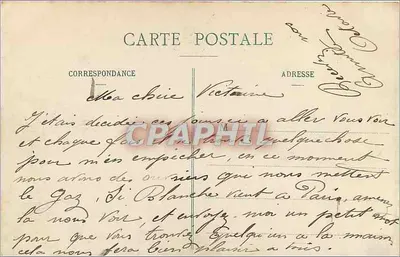 CARTE POSTALE
CORRESPONDANCE
ADRESSE
Ma chère Victorine
J'étais decidée ces jours ci a aller vous voir
et chaque fois il quelque chose
pour m'en empécher, en ce moment
nous avons des ouvriers qui nous mettent
le Gaz, Si Blanche vient a Paris amene
la nous voir, et envoye moi un petit mot
pour que vous trouviez quelqu'un a la maison
cela nous fera bien plaisir a tous.
CPAPHIL